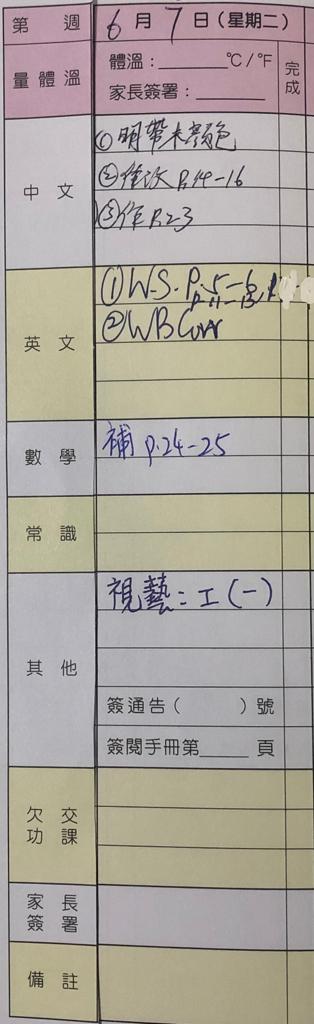 第 週 6月7日(星期二)
量體溫
體溫：______°C/°F
家長簽署：______
完成
中文
①明帶木顏色
②修改 P.14-16
③作 P.2-3
英文
①W.S. P.5-6,
P.11-13,
②WB Corr
數學
補 P.24-25
常識
其他
視藝：工(一)
簽通告( )號
簽閱手冊第____頁
欠交功課
家長簽署
備註